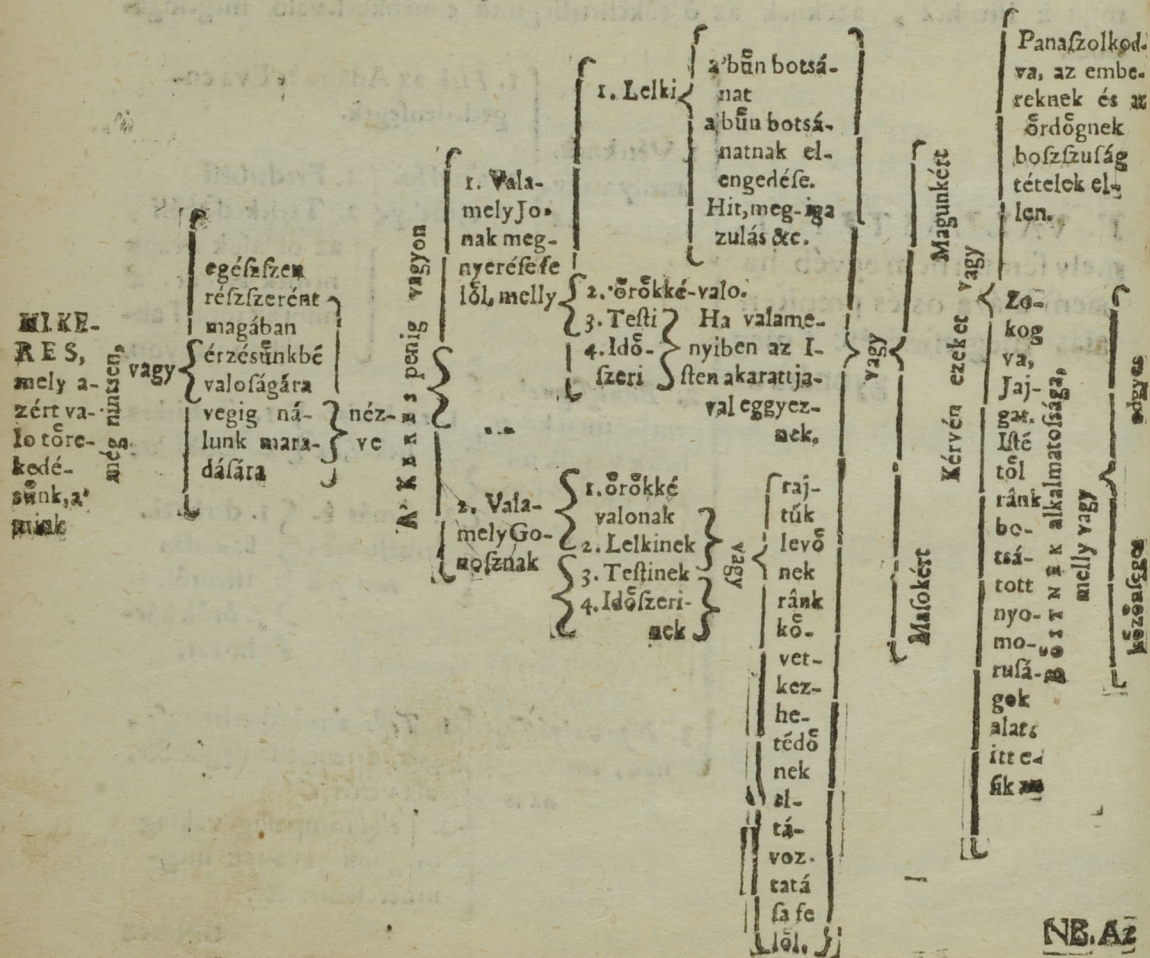 RES,
mely a-
zért va-
lo tőre-
kedé-
sűnk, a'
mink
még nintsen,
vagy
egéſzſzen
réſzſzerént
magában
érzésűnkbé
valoságára
vegig ná-
lunk mara-
dáſára
néz-
ve
A' KERES penig vagyon
1. Vala-
mely Jo-
nak meg-
nyeréſe fe
lől, melly
1. Lelki
a' bűn botsá-
nat
a bűn botsá-
natnak el-
engedéſe.
Hit, meg-iga
zulás &c.
2. őrőkké-valo.
3. Teſti
4. Idő-
ſzeri
Ha valame-
nyiben az I-
ſten akarattja-
val eggyez-
nek.
2. Vala-
mely Go-
noſznak
1. őrőkké
valonak
2. Lelkinek
3. Teſtinek
4. Időſzeri-
nek
vagy
raj-
tűk
levő
nek
ránk
kő-
vet-
kez-
he-
tédő
nek
el-
tá-
voz-
tatá
ſa fe
lől.
vagy
Magunkért
Maſokért
Kérvén ezeket vagy
Panaſzolkod-
va, az embe-
reknek és az
őrdőgnek
boſzſzuſág
tételek el-
len.
Zo-
kog
va,
Jaj-
gat.
Iſté
től
ránk
bo-
tsá-
tott
nyo-
mo-
ruſá-
gok
alatt
itt e-
ſik az
BŐITNEK alkalmatoſſága,
melly vagy
edgyes
kőzőnſeges
NB. Az